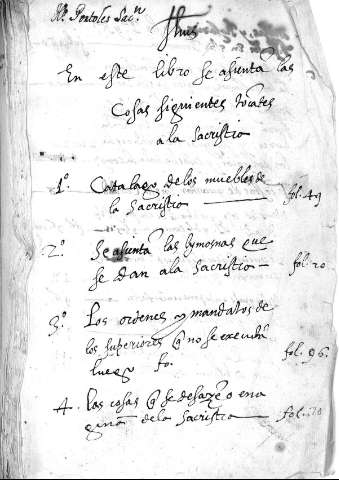 Mº Pontoles Sacⁿ
Jhus
En este libro se asientã las
Cosas siguientes tocãtes
a la Sacristio
1º Catalago de los muebles de
la Sacristio fol. 49
2º Se asientã las lymosnas que
se dan a la Sacristio fol. 20
3º Los ordenes y mandatos de
los superiores q̃ no se executã
luego fo. fol. 96.
4. Las cosas q̃ se desazẽ o ena
genã de la Sacristio fol.